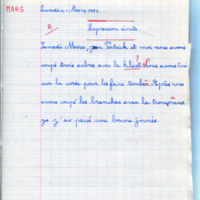 MARS
Lundi 1 Mars 1993
Expression écrite
Samedi Matin, Patrick et moi nous avons
coupé trois arbres avec le Nous avons tiré
sur la corde pour les faire tomber. Après nous
avons coupé les branches avec la
j'ai passé une bonne journée.